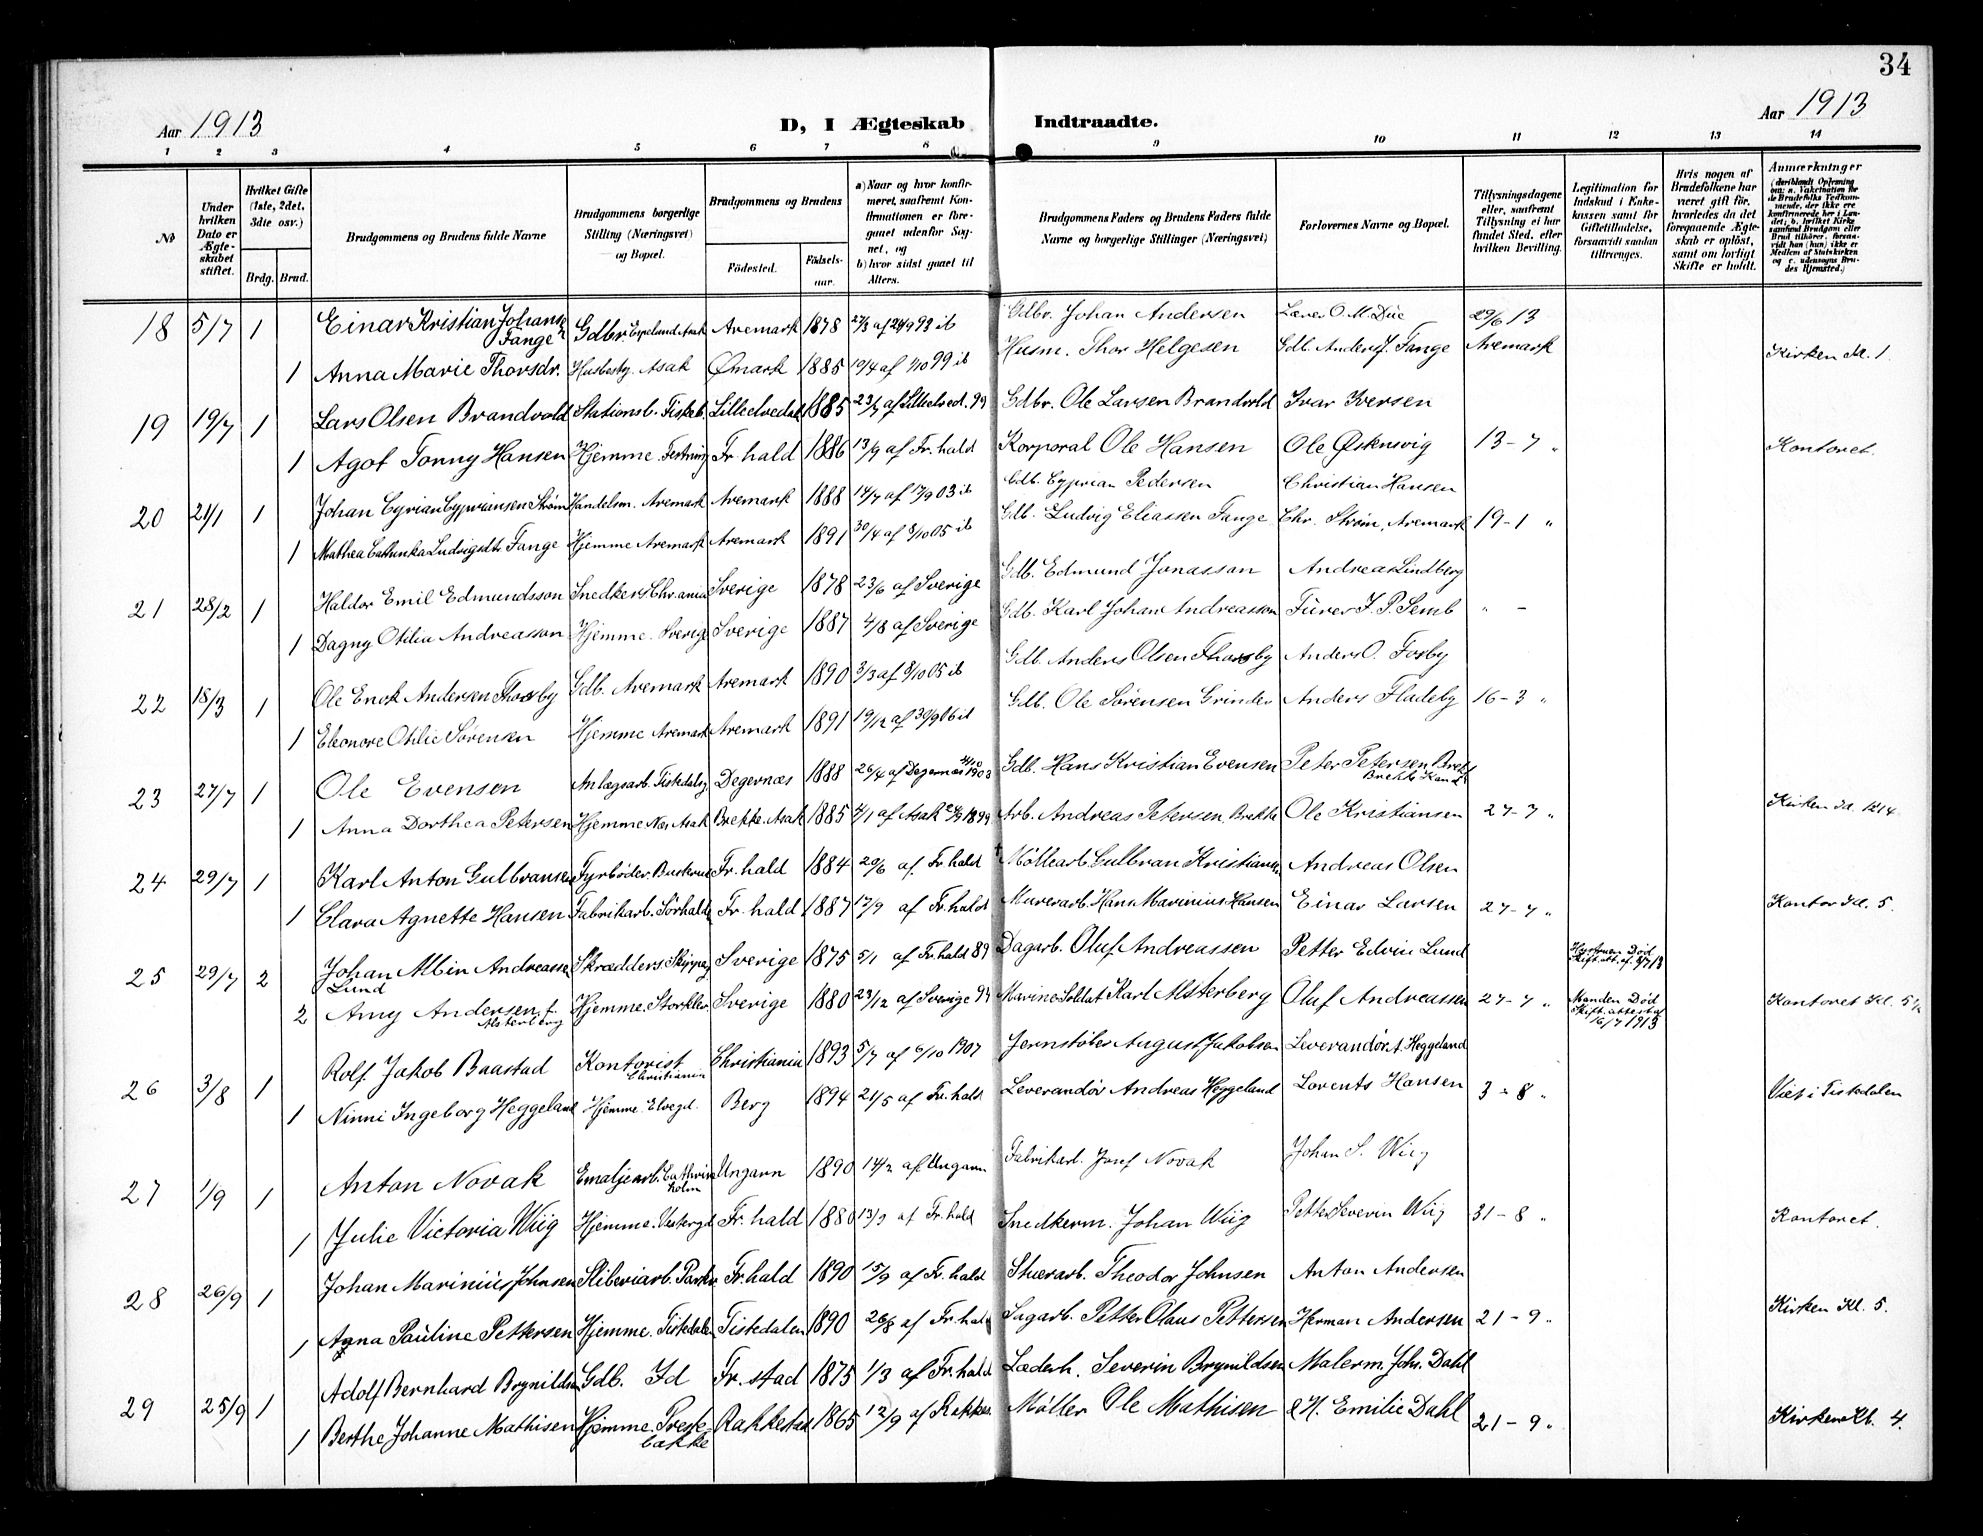 34
Aar 1913
D, I Ægteskab Indtraadte.
Aar 1913
1 2 3 4 5 6 7 8 9 10 11 12 13 14
No
Under hvilken Dato er Ægteskabet stiftet.
Hvilket Gifte (1ste, 2det, 3die osv.)
Brdg. Brud.
Brudgommens og Brudens fulde Navne
Brudgommens borgerlige Stilling (Næringsvei) og Bopæl.
Brudgommens og Brudens
Födested.
Födsels-aar.
a) Naar og hvor konfirmeret, saafremt Konfirmationen er foregaaet udenfor Sognet, og
b) hvor sidst gaaet til Alters.
Brudgommens Faders og Brudens Faders fulde Navne og borgerlige Stillinger (Næringsvei)
Forlovernes Navne og Bopæl.
Tillysningsdagene eller, saafremt Tillysning ei har fundet Sted, efter hvilken Bevilling.
Legitimation for Indskud i Enkekassen samt for Giftetilladelse, forsaavidt saadan tiltrænges.
Hvis nogen af Brudefolkene har været gift för, hvorledes da det foregaaende Ægteskab er oplöst, samt om lovligt Skifte er holdt.
Anmærkninger
18 5/7 1 Einar Kristian Johansen Fange Gdbr. Aremark 1878 af 24/9 93 ib Gdbr. Johan Andersen Lærer O. M. Due 29/6 13
1 Anna Marie Thorsdr. Husbesty. Asak Ømark 1885 19/4 af 1/10 99 ib Husm. Thor Helgesen Gdb. Anders J. Fange Aremark Kirken Kl. 1.
19 19/7 1 Lars Olsen Brandvold Stationsb. Tisteb. Lilleelvedal 1885 23/7 af Lilleelved. 99 Gdbr. Ole Larsen Brandvold Ivar Iversen
1 Agot Tonny Hansen Hjemme. Festning Fr. hald 1886 13/9 af Fr. hald Korporal Ole Hansen Ole Øskensvig 13-7 " Kontoret.
20 21/1 1 Johan Cyrian Cypriansen Strøm Handelsm. Aremark Aremark 1888 14/7 af 17/9 03 ib Gdb. Cyprian Pedersen Christian Hansen
1 Mathea Cathinka Ludvigsdtr Fange Hjemme Aremark Aremark 1891 30/4 af 8/10 05 ib Gdb. Ludvig Eliassen Fange Chr. Strøm, Aremark 19-1 "
21 28/2 1 Haldor Emil Edmundsson Snedkers Chr.ania Sverige 1878 23/6 af Sverige Gdb. Edmund Jonasson Andreas Lindberg
1 Dagny Otilia Andreasson Hjemme. Sverig Sverige 1887 4/8 af Sverige Gdb. Karl Johan Andreasson Fürer J. P. Semb " -
22 18/3 1 Ole Enok Andersen Thosby Gdb. Aremark Aremark 1890 3/3 af 8/10 05 ib Gdb. Anders Olsen Thosby Anders O. Fosby
1 Eleonore Otilie Sørensen Hjemme Aremark Aremark 1891 19/12 af 30/9 06 ib Gdb. Ole Sørensen Grinder Anders Fladeby 16-3 "
23 27/7 1 Ole Evensen Anlægsarb. Tistedalsg. Degernæs 1888 26/4 af Degernæs 1903 Gdb. Hans Kristian Evensen Peter Petersen Brekke
1 Anna Dorthea Petersen Hjemme Næs Asak Brekke. Asak 1885 4/1 af Asak 24/9 1899 Arb. Andreas Petersen, Brekke Ole Kristiansen 27-7 " Kirken Kl. 12 1/4
24 29/7 1 Karl Anton Gulbransen Fyrbøder. Busterud Fr. hald 1884 20/6 af Fr. hald Møllearb. Gulbran Kristiansen Andreas Olsen
1 Clara Agnette Hansen Fabrikarb. Sørhalden Fr. hald 1887 17/9 af Fr. hald Murerarb. Hans Marinius Hansen Einar Larsen 27-7 " Kontor Kl. 5.
25 29/7 2 Johan Albin Andreassen Lund Skrædders. Skippag. Sverige 1875 5/1 af Fr. hald 89 Dagarb. Oluf Andreassen Petter Edvin Lund Hustruen Død Skift. att. af 3/7 13
2 Amy Andersen f. Alsterberg Hjemme. Storklev. Sverige 1880 23/12 af Sverige 94 Marine Soldat Karl Alsterberg Oluf Andreassen 27-7 " Manden Død Skift. attest af 16/7 1913 Kontoret Kl. 5 1/2
26 3/8 1 Rolf Jakob Baastad Kontorist Christiania Christiania 1893 5/7 af 6/10 1907 Jernstøber August Jakobsen Leverandør A. Heggeland
1 Ninni Ingeborg Heggeland Hjemme. Elvegd. Berg 1894 21/5 af Fr. hald Leverandør Andreas Heggeland Lorents Hansen 3-8 " Viet i Tistedalen
27 1/9 1 Anton Novak Emaljearb. Cathrineholm Ungarn 1890 14/2 af Ungarn Fabrikarb. Josef Novak Johan S. Wiig
1 Julie Victoria Wiig Hjemme. Vestergd Fr. hald 1880 13/9 af Fr. hald Snedkerm. Johan Wiig Petter Severin Wiig 31-8 " Kontoret.
28 26/9 1 Johan Marinius Johnsen Sliberiarb. Parken Fr. hald 1890 15/9 af Fr. hald Stuerarb. Theodor Johnsen Anton Andersen
1 Agna Pauline Pettersen Hjemme. Tistedalen Tistedalen 1890 26/8 af Fr. hald Sagarb. Petter Olaus Pettersen Herman Andersen 21-9 " Kirken Kl. 5.
29 25/9 1 Adolf Bernhard Brynildsen Gdb. Id Fr. stad 1875 1/3 af Fr. hald Læderh. Severin Brynildsen Malerm. Johs. Dahl
1 Berthe Johanne Mathisen Hjemme. Prestebakke Rakkestad 1865 12/9 af Rakkes. Møller Ole Mathisen & H. Emilie Dahl 21-9 " Kirken Kl. 4.